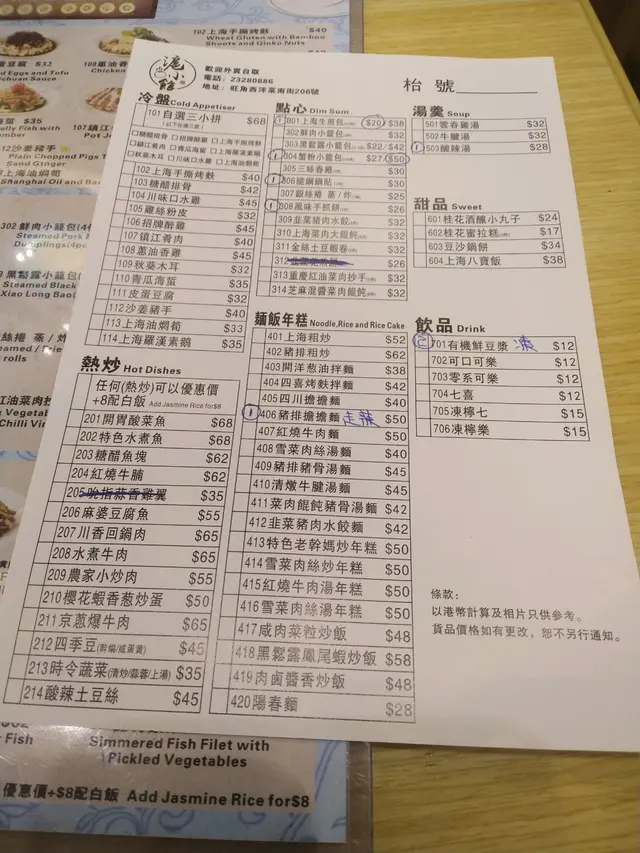 102 上海手撕烤麩 $40
Wheat Gluten with Bamboo
Shoots and Ginko Nuts
滬小館
歡迎外賣自取
電話: 23280886
地址: 旺角西洋菜南街206號
枱號
冷盤 Cold Appetiser
101 自選三小拼 $68
(以下任選三款)
□糖醋排骨 □招牌醉雞 □上海手撕烤麩
□鎮江肴肉 □青瓜海蜇 □上海羅漢素鵝
□秋葵木耳 □川味口水雞 □上海油燜筍
102 上海手撕烤麩 $40
103 糖醋排骨 $42
104 川味口水雞 $45
105 雞絲粉皮 $32
106 招牌醉雞 $45
107 鎮江肴肉 $40
108 蔥油香雞 $45
109 秋葵木耳 $32
110 青瓜海蜇 $35
111 皮蛋豆腐 $32
112 沙姜豬手 $40
113 上海油燜筍 $33
114 上海羅漢素鵝 $35
熱炒 Hot Dishes
任何(熱炒)可以優惠價
+8配白飯 Add Jasmine Rice for$8
201 開胃酸菜魚 $68
202 特色水煮魚 $68
203 糖醋魚塊 $62
204 紅燒牛腩 $62
205 吮指蒜香雞翼 $35
206 麻婆豆腐魚 $55
207 川香回鍋肉 $65
208 水煮牛肉 $65
209 農家小炒肉 $55
210 櫻花蝦香葱炒蛋 $50
211 京蔥爆牛肉 $65
212 四季豆(乾煸/咸蛋黄) $45
213 時令蔬菜(清炒/蒜蓉/上湯) $35
214 酸辣土豆絲 $45
點心 Dim Sum
1 301 上海生煎包 $20 $38
302 鮮肉小籠包 $32
303 黑鬆露小籠包 $22/$42
1 304 蟹粉小籠包 $27/$50
305 三絲春卷 $30
1 306 脆鍋鍋貼 $30
307 銀絲捲 蒸/炸 $25
1 308 風味手抓餅 $26
309 韭菜豬肉水餃 $32
310 上海菜肉大餛飩 $32
311 金絲土豆蝦卷 $32
312 $26
313 重慶紅油菜肉抄手 $32
314 芝麻混醬菜肉餛飩 $32
麵飯年糕 Noodle,Rice and Rice Cake
401 上海粗炒 $52
402 豬排粗炒 $62
403 開洋葱油拌麵 $38
404 四喜烤麩拌麵 $42
405 四川擔擔麵 $40
1 406 豬排擔擔麵 走辣 $50
407 紅燒牛肉麵 $50
408 雪菜肉絲湯麵 $40
409 豬排豬骨湯麵 $45
410 清燉牛腱湯麵 $45
411 菜肉餛飩豬骨湯麵 $42
412 韭菜豬肉水餃麵 $42
413 特色老幹媽炒年糕 $50
414 雪菜肉絲炒年糕 $50
415 紅燒牛肉湯年糕 $50
416 雪菜肉絲湯年糕 $50
417 咸肉菜粒炒飯 $48
418 黑鬆露鳳尾蝦炒飯 $58
419 肉鹵醬香炒飯 $48
420 陽春麵 $28
湯羹 Soup
501 雲吞雞湯 $32
502 牛腱湯 $32
1 503 酸辣湯 $28
甜品 Sweet
601 桂花酒釀小丸子 $24
602 桂花蜜拉糕 $17
603 豆沙鍋餅 $34
604 上海八寶飯 $38
飲品 Drink
2 701 有機鮮豆漿 凍 $12
702 可口可樂 $12
703 零系可樂 $12
704 七喜 $12
705 凍檸七 $15
706 凍檸樂 $15
條款:
以港幣計算及相片只供參考。
貨品價格如有更改,恕不另行通知。
Simmered Fish Filet with
Pickled Vegetables
優惠價+$8配白飯 Add Jasmine Rice for$8